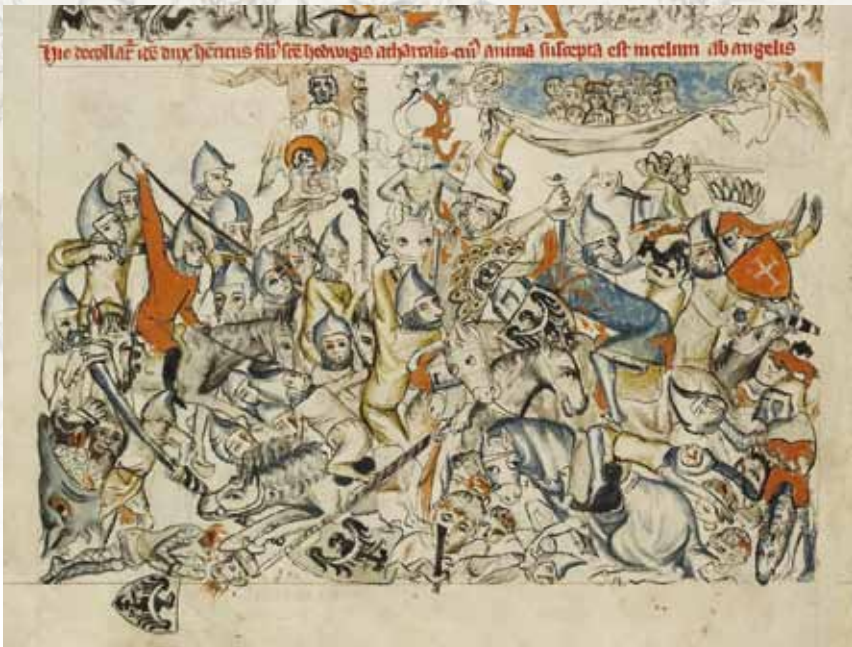 Hic decollat̄ idē dux hēricus fili' scē hedwigis a thartaris cui' anima suscepta est in celum ab angelis